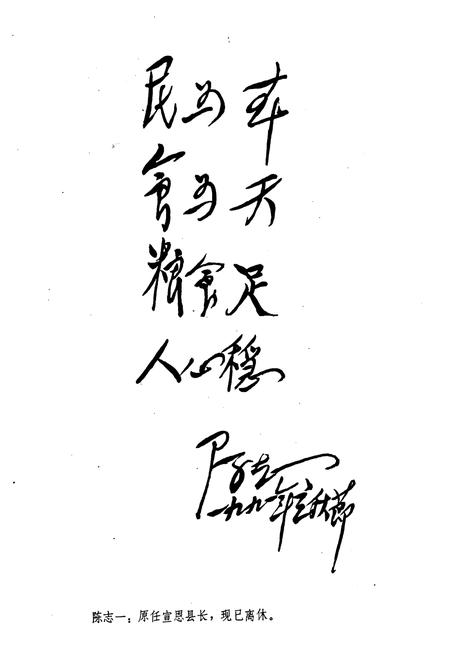 民为本
食为天
粮食足
人心稳
陈志一
一九九一年立秋节
陈志一：原任宣恩县长，现已离休。